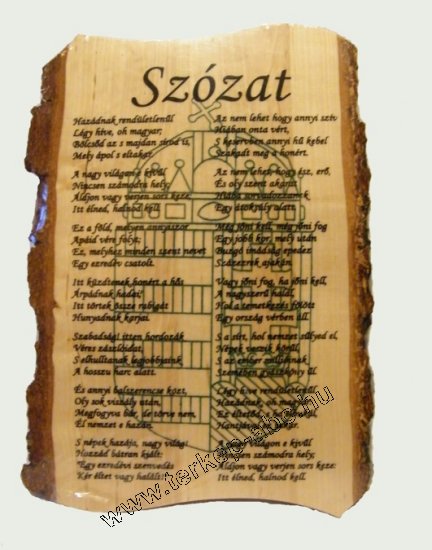 Szózat
Hazádnak rendületlenűl
Légy híve, oh magyar;
Bölcsőd az s majdan sírod is,
Mely ápol s eltakar.
A nagy világon e kívűl
Nincsen számodra hely;
Áldjon vagy verjen sors keze:
Itt élned, halnod kell.
Ez a föld, melyen annyiszor
Apáid vére folyt;
Ez, melyhez minden szent nevet
Egy ezredév csatolt.
Itt küzdtenek honért a hős
Árpádnak hadai;
Itt törtek össze rabigát
Hunyadnak karjai.
Szabadság! itten hordozák
Véres zászlóidat,
S elhulltanak legjobbjaink
A hosszu harc alatt.
És annyi balszerencse közt,
Oly sok viszály után,
Megfogyva bár, de törve nem,
Él nemzet e hazán.
S népek hazája, nagy világ!
Hozzád bátran kiált:
"Egy ezredévi szenvedés
Kér éltet vagy halált!"
Az nem lehet hogy annyi szív
Hiában onta vért,
S keservben annyi hű kebel
Szakadt meg a honért.
Az nem lehet hogy ész, erő,
És oly szent akarat
Hiába sorvadozzanak
Egy átoksúly alatt.
Még jőni kell, még jőni fog
Egy jobb kor, mely után
Buzgó imádság epedez
Százezrek ajakán.
Vagy jőni fog, ha jőni kell,
A nagyszerű halál,
Hol a temetkezés fölött
Egy ország vérben áll.
S a sírt, hol nemzet sűlyed el,
Népek veszik körűl,
S az ember millióinak
Szemében gyászköny űl.
Légy híve rendületlenűl
Hazádnak, oh magyar;
Ez éltetőd, s ha elbukál,
Hantjával ez takar.
A nagy világon e kívűl
Nincsen számodra hely;
Áldjon vagy verjen sors keze:
Itt élned, halnod kell.